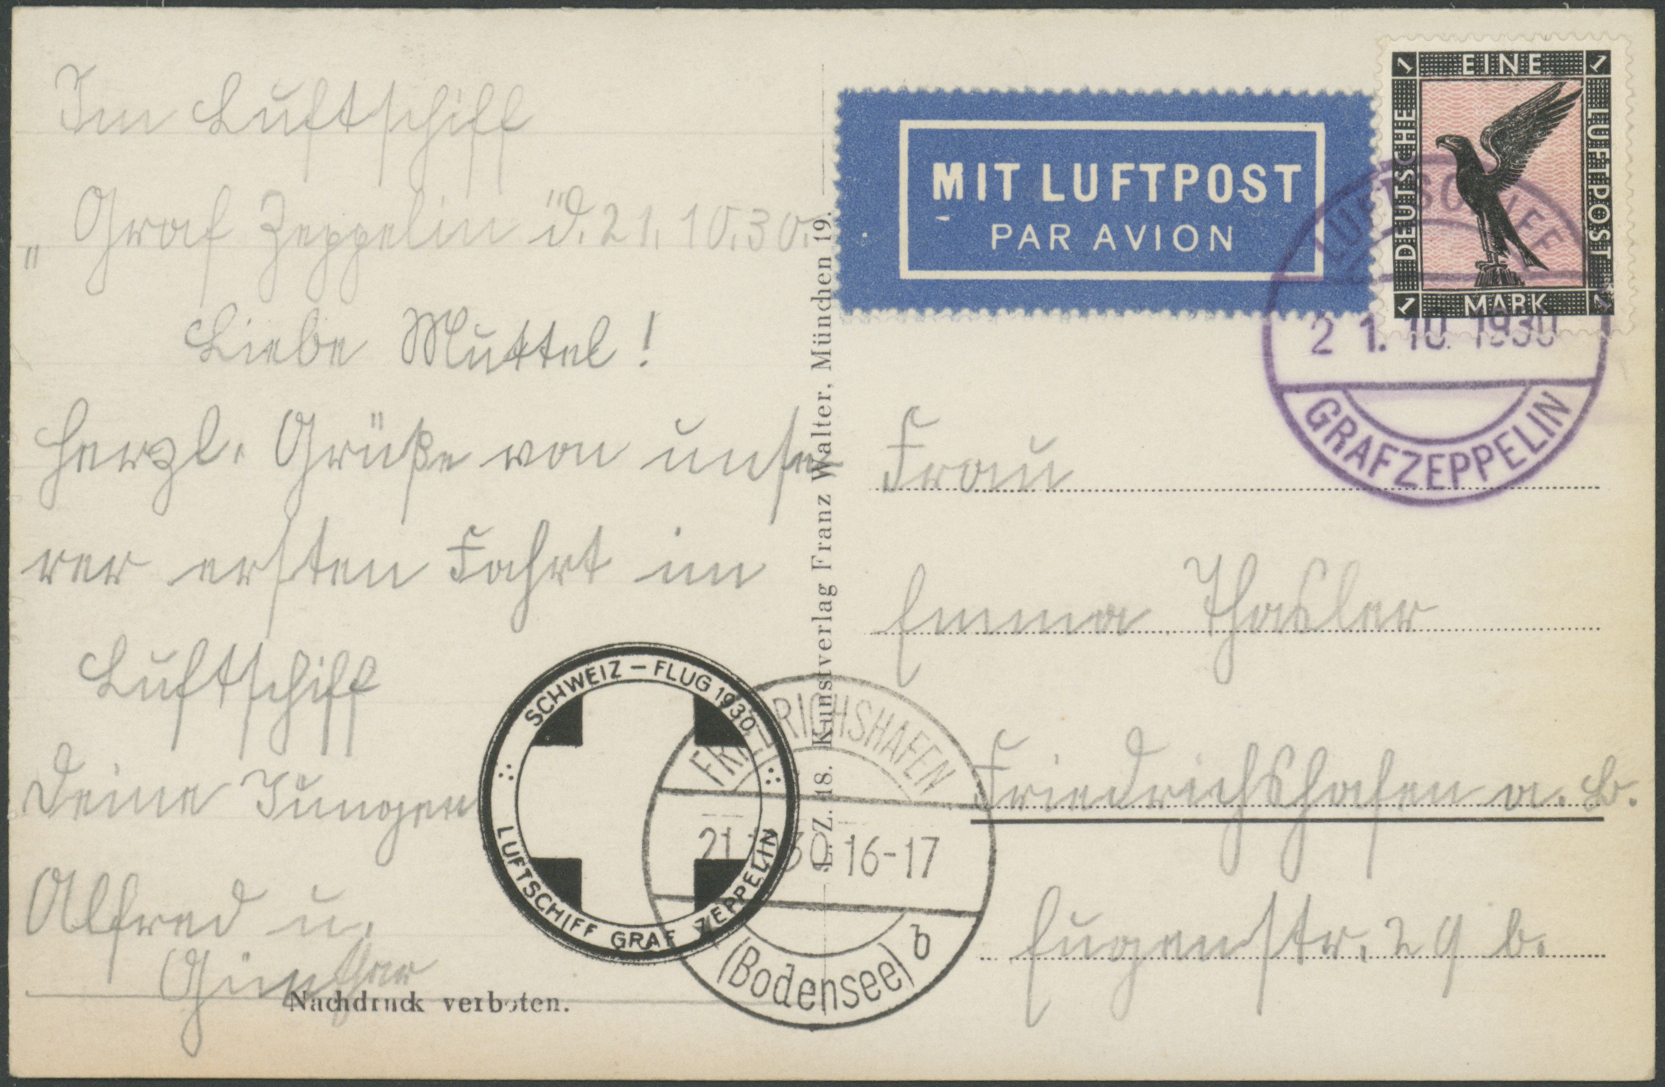 Im Luftschiff
„Graf Zeppelin" d. 21.10.30.
Liebe Muttel!
Herzl. Grüße von unse-
rer ersten Fahrt im
Luftschiff
Deine Jungen
Alfred u.
Günther
Nachdruck verboten.
L. Z. 18. Kunstverlag Franz Walter, München 19.
MIT LUFTPOST
PAR AVION
1 EINE 1
DEUTSCHE
LUFTPOST
1 MARK 1
LUFTSCHIFF
21.10.1930
GRAF ZEPPELIN
Frau
Emma Thasler
Friedrichshafen a. B.
Eugenstr. 29 b.
SCHWEIZ – FLUG 1930
LUFTSCHIFF GRAF ZEPPELIN
FRIEDRICHSHAFEN
21.10.30.16-17
(Bodensee) b